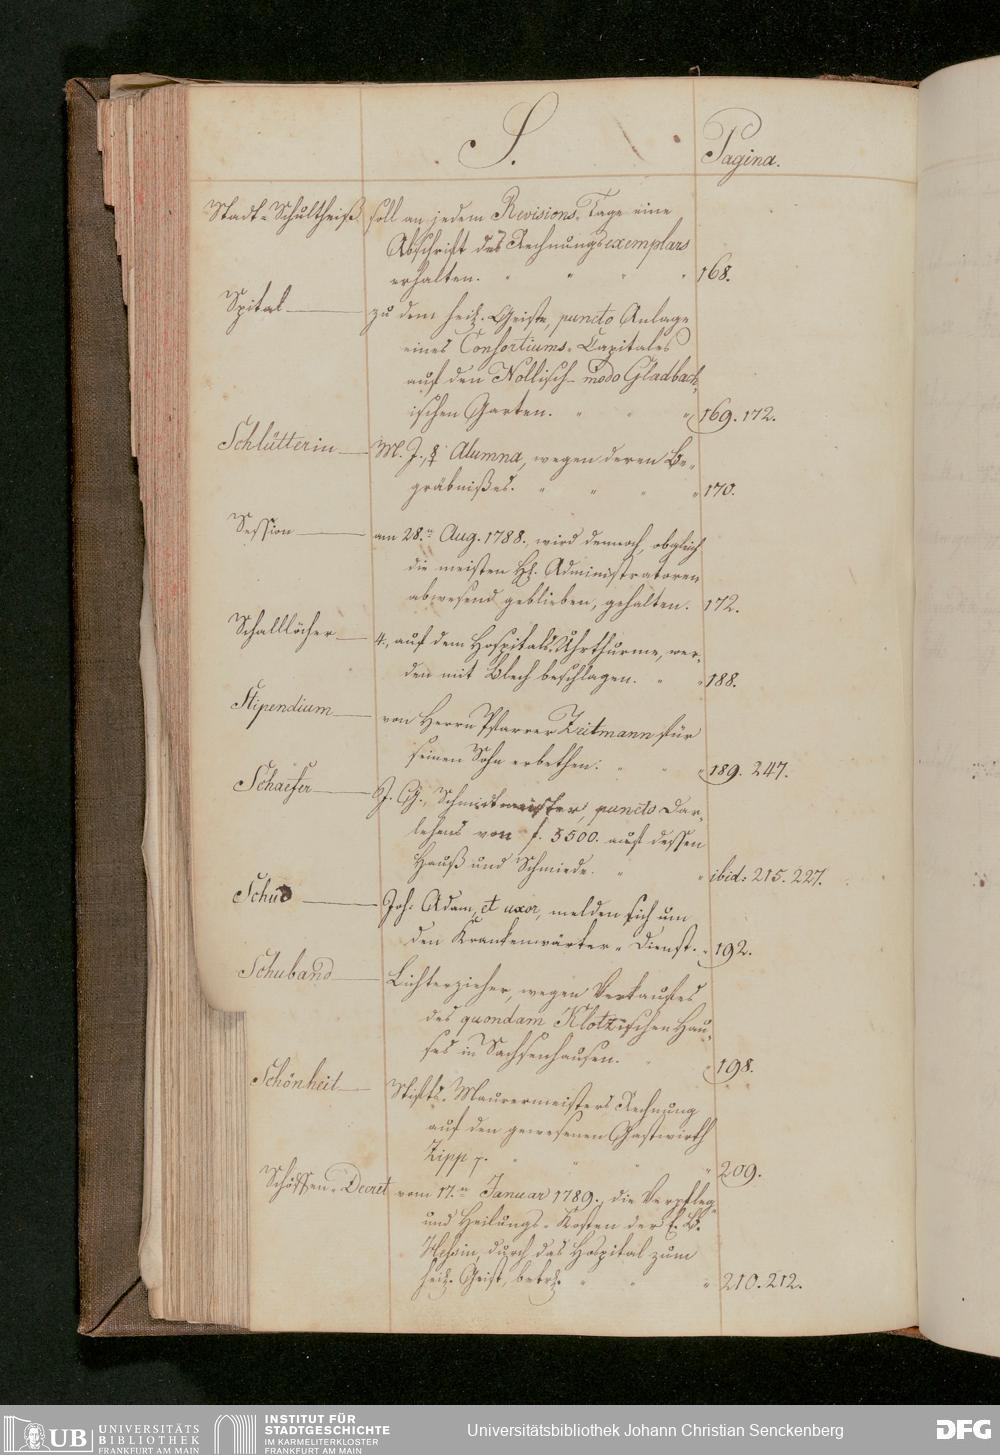 S.
Pagina.
Stadt-Schultheiß soll an jedem Revisions-Tage eine
Abschrift des Rechnungsexemplars
erhalten. 168.
Spital zu dem heil. Geiste, puncto Anlage
eines Consortiums-Capitales
auf den Nollisch- modo Gladbach-
ischen Garten. 169. 172.
Schlütterin M. J., Alumna, wegen deren Be-
gräbnißes. 170.
Session am 28.n Aug. 1788., wird dennoch, obgleich
die meisten HH. Administratoren
abwesend geblieben, gehalten. 172.
Schalllöcher 4., auf dem Hospitals-Uhrthurme, wer-
den mit Blech beschlagen. 188.
Stipendium von Herrn Pfarrer Zeitmann für
seinen Sohn erbethen. 189. 247.
Schaefer J. G., Schmidtmeister, puncto Dar-
lehens von f. 3500. auf dessen
Hauß und Schmiede. ibid: 215. 227.
Schud Joh. Adam, et uxor, melden sich um
den Krankenwärter-Dienst. 192.
Schuband Lichterzieher, wegen Verkaufes
des quondam Klotzischen Hau-
ses in Sachsenhausen. 198.
Schönheit Stifts-Maurermeisters Rechnung
auf den gewesenen Gastwirth
Zipp 209.
Schöffen-Decret vom 17.n Januar 1789., die Verpfleg-
und Heilungs-Kosten der E. B.
durch das Hospital zum
heil. Geist, betr. 210. 212.
UB UNIVERSITÄTS
BIBLIOTHEK
FRANKFURT AM MAIN
INSTITUT FÜR
STADTGESCHICHTE
IM KARMELITERKLOSTER
FRANKFURT AM MAIN
Universitätsbibliothek Johann Christian Senckenberg
DFG